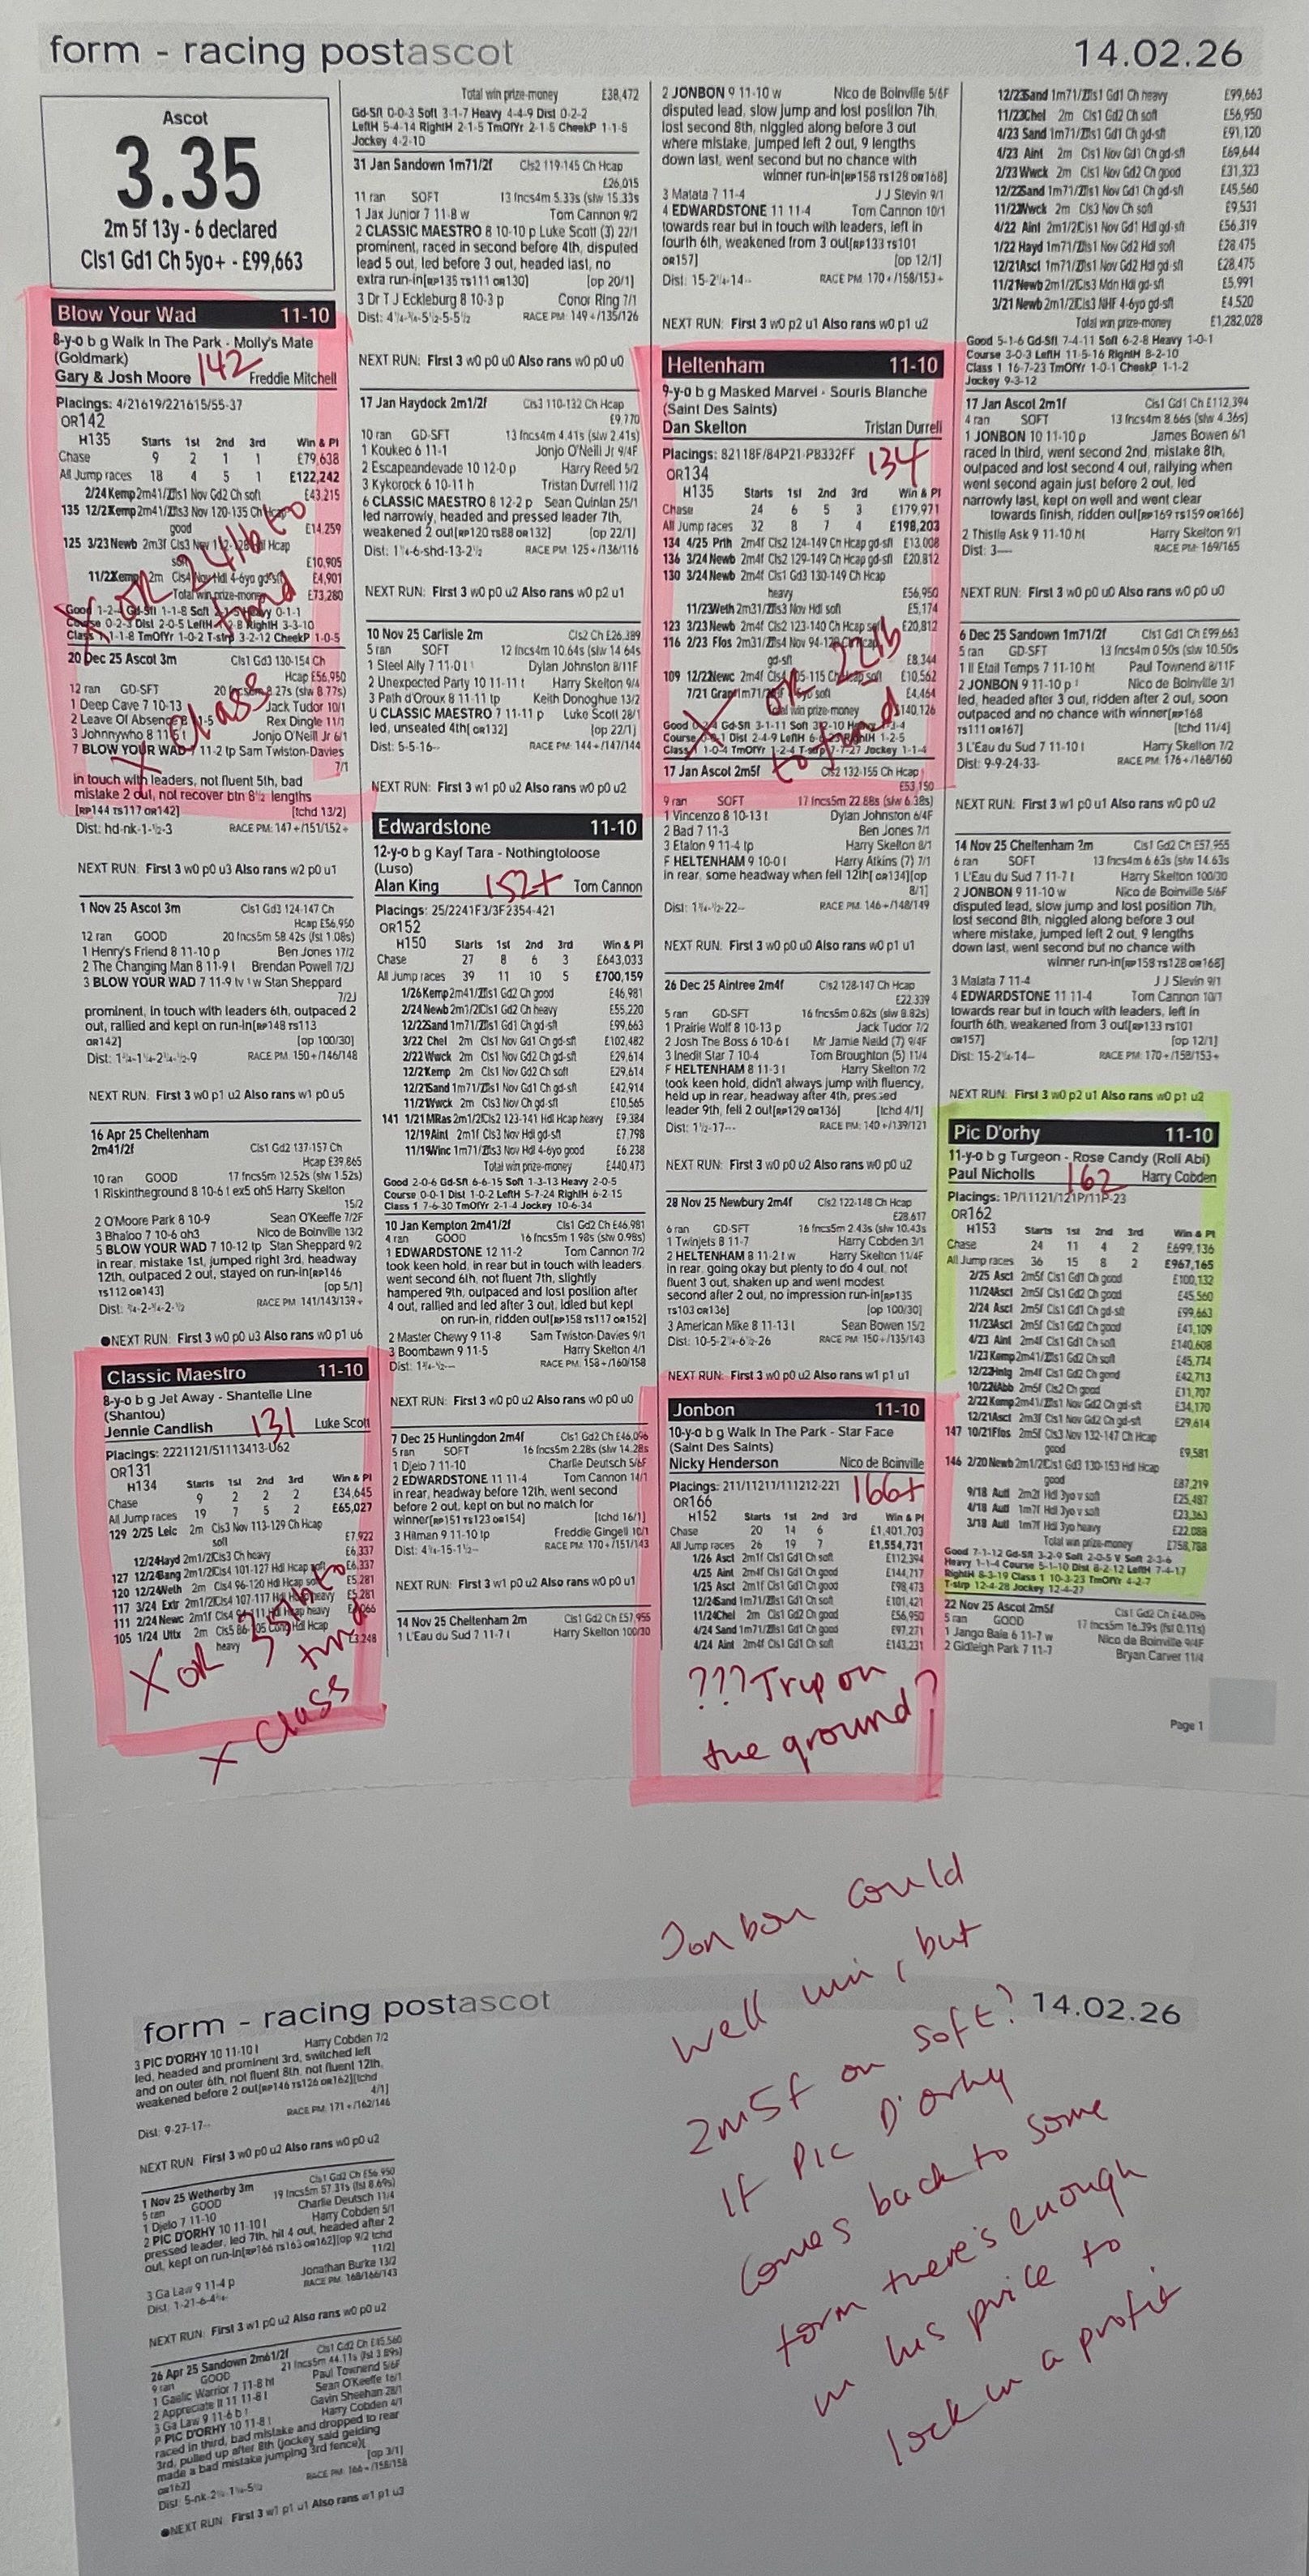 form - racing postascot
14.02.26
Ascot
3.35
2m 5f 13y - 6 declared
Cls1 Gd1 Ch 5yo+ - £99,663
Blow Your Wad 11-10
8-y-o b g Walk In The Park - Molly's Mate
(Goldmark)
142
Gary & Josh Moore Freddie Mitchell
Placings: 4/21619/221615/55-37
OR142
H135 Starts 1st 2nd 3rd Win & Pl
Chase 9 2 1 1 £79,638
All Jump races 18 4 5 1 £122,242
2/24 Kemp 2m41/2f Cls1 Nov Gd2 Ch soft £43,215
135 12/23 Kemp 2m41/2f Cls3 Nov 120-135 Ch Hcap
good £14,259
125 3/23 Newb 2m3f Cls3 Nov Hdl Hcap
soft £10,905
11/22 Kemp 2m Cls4 Nov Hdl 4-6yo gd-sft £4,901
Total win prize-money £73,280
X OR 24lb to find
Good 1-2-4 Gd-Sft 1-1-8 Soft Heavy 0-1-1
Course 0-2-3 Dist 2-0-5 LeftH RightH 3-3-10
Class 1 1-1-8 TmOfYr 1-0-2 T-strp 3-2-12 CheekP 1-0-5
X Class
20 Dec 25 Ascot 3m Cls1 Gd3 130-154 Ch
Hcap £56,950
12 ran GD-SFT
1 Deep Cave 7 10-13 Jack Tudor 10/1
2 Leave Of Absence Rex Dingle 11/1
3 Johnnywho 8 11-5 Jonjo O'Neill Jr 6/1
7 BLOW YOUR WAD 7 11-2 tp Sam Twiston-Davies
7/1
in touch with leaders, not fluent 5th, bad
mistake 2 out, not recover btn 8½ lengths
[RP144 TS117 OR142] [tchd 13/2]
Dist: hd-nk-1-½-3 RACE PM: 147+/151/152+
NEXT RUN: First 3 w0 p0 u3 Also rans w2 p0 u1
1 Nov 25 Ascot 3m Cls1 Gd3 124-147 Ch
Hcap £56,950
12 ran GOOD 20 fncs5m 58.42s (fst 1.08s)
1 Henry's Friend 8 11-10 p Ben Jones 17/2
2 The Changing Man 8 11-9 t Brendan Powell 7/2J
3 BLOW YOUR WAD 7 11-9 tv¹w Stan Sheppard
7/2J
prominent, in touch with leaders 6th, outpaced 2
out, rallied and kept on run-in[RP148 TS113
OR142] [op 100/30]
Dist: 1¼-1¼-2¼-½-9 RACE PM: 150+/146/148
NEXT RUN: First 3 w0 p1 u2 Also rans w1 p0 u5
16 Apr 25 Cheltenham
2m41/2f Cls1 Gd2 137-157 Ch
Hcap £39,865
10 ran GOOD 17 fncs5m 12.52s (slw 1.52s)
1 Riskintheground 8 10-6 t ex5 oh5 Harry Skelton
15/2
2 O'Moore Park 8 10-9 Sean O'Keeffe 7/2F
3 Bhaloo 7 10-6 oh3 Nico de Boinville 13/2
5 BLOW YOUR WAD 7 10-12 tp Stan Sheppard 9/2
in rear, mistake 1st, jumped right 3rd, headway
12th, outpaced 2 out, stayed on run-in[RP146
TS112 OR143] [op 5/1]
Dist: ¾-2-¾-2-½ RACE PM: 141/143/139+
●NEXT RUN: First 3 w0 p0 u3 Also rans w0 p1 u6
Classic Maestro 11-10
8-y-o b g Jet Away - Shantelle Line
(Shantou)
131
Jennie Candlish Luke Scott
Placings: 2221121/51113413-U62
OR131
H134 Starts 1st 2nd 3rd Win & Pl
Chase 9 2 2 2 £34,645
All Jump races 19 7 5 2 £65,027
129 2/25 Leic 2m Cls3 Nov 113-129 Ch Hcap
soft £7,922
12/24 Hayd 2m1/2f Cls3 Ch heavy £6,337
127 12/24 Bang 2m1/2f Cls4 101-127 Hdl Hcap soft £6,337
120 12/24 Weth 2m Cls4 96-120 Hdl Hcap soft £5,281
117 3/24 Extr 2m1/2f Cls4 107-117 Hdl Hcap heavy £5,281
111 2/24 Newc 2m1f Cls4 Hdl Hcap heavy
105 1/24 Uttx 2m Cls5 86-105 Cond Hdl Hcap
heavy £3,248
X OR 35lb to find
X Class
Total win prize-money £38,472
Gd-Sft 0-0-3 Soft 3-1-7 Heavy 4-4-9 Dist 0-2-2
LeftH 5-4-14 RightH 2-1-5 TmOfYr 2-1-5 CheekP 1-1-5
Jockey 4-2-10
31 Jan Sandown 1m71/2f Cls2 119-145 Ch Hcap
£26,015
11 ran SOFT 13 fncs4m 5.33s (slw 15.33s)
1 Jax Junior 7 11-8 w Tom Cannon 9/2
2 CLASSIC MAESTRO 8 10-10 p Luke Scott (3) 22/1
prominent, raced in second before 4th, disputed
lead 5 out, led before 3 out, headed last, no
extra run-in[RP135 TS111 OR130] [op 20/1]
3 Dr T J Eckleburg 8 10-3 p Conor Ring 7/1
Dist: 4¼-¾-5½-5-5½ RACE PM: 149+/135/126
NEXT RUN: First 3 w0 p0 u0 Also rans w0 p0 u0
17 Jan Haydock 2m1/2f Cls3 110-132 Ch Hcap
£9,770
10 ran GD-SFT 13 fncs4m 4.41s (slw 2.41s)
1 Koukeo 6 11-1 Jonjo O'Neill Jr 9/4F
2 Escapeandevade 10 12-0 p Harry Reed 5/2
3 Kykorock 6 10-11 h Tristan Durrell 11/2
6 CLASSIC MAESTRO 8 12-2 p Sean Quinlan 25/1
led narrowly, headed and pressed leader 7th,
weakened 2 out[RP120 TS88 OR132] [op 22/1]
Dist: 1¼-6-shd-13-2½ RACE PM: 125+/136/116
NEXT RUN: First 3 w0 p0 u2 Also rans w0 p2 u1
10 Nov 25 Carlisle 2m Cls2 Ch £26,389
5 ran SOFT 12 fncs4m 10.64s (slw 14.64s)
1 Steel Ally 7 11-0 t Dylan Johnston 8/11F
2 Unexpected Party 10 11-11 t Harry Skelton 9/4
3 Path d'Oroux 8 11-11 tp Keith Donoghue 13/2
U CLASSIC MAESTRO 7 11-11 p Luke Scott 28/1
led, unseated 4th[OR132] [op 22/1]
Dist: 5-5-16-- RACE PM: 144+/147/144
NEXT RUN: First 3 w1 p0 u2 Also rans w0 p0 u2
Edwardstone 11-10
12-y-o b g Kayf Tara - Nothingtoloose
(Luso)
152+
Alan King Tom Cannon
Placings: 25/2241F3/3F2354-421
OR152
H150 Starts 1st 2nd 3rd Win & Pl
Chase 27 8 6 3 £643,033
All Jump races 39 11 10 5 £700,159
1/26 Kemp 2m41/2f Cls1 Gd2 Ch good £46,981
2/24 Newb 2m1/2f Cls1 Gd2 Ch heavy £55,220
12/22 Sand 1m71/2f Cls1 Gd1 Ch gd-sft £99,663
3/22 Chel 2m Cls1 Nov Gd1 Ch gd-sft £102,482
2/22 Wwck 2m Cls1 Nov Gd2 Ch gd-sft £29,614
12/21 Kemp 2m Cls1 Nov Gd2 Ch soft £29,614
12/21 Sand 1m71/2f Cls1 Nov Gd1 Ch gd-sft £42,914
11/21 Wwck 2m Cls3 Nov Ch gd-sft £10,565
141 1/21 MRas 2m1/2f Cls2 123-141 Hdl Hcap heavy £9,384
12/19 Aint 2m1f Cls3 Nov Hdl gd-sft £7,798
11/19 Winc 1m71/2f Cls3 Nov Hdl 4-6yo good £6,238
Total win prize-money £440,473
Good 2-0-6 Gd-Sft 6-6-15 Soft 1-3-13 Heavy 2-0-5
Course 0-0-1 Dist 1-0-2 LeftH 5-7-24 RightH 6-2-15
Class 1 7-6-30 TmOfYr 2-1-4 Jockey 10-6-34
10 Jan Kempton 2m41/2f Cls1 Gd2 Ch £46,981
4 ran GOOD 16 fncs5m 1.98s (slw 0.98s)
1 EDWARDSTONE 12 11-2 Tom Cannon 7/2
took keen hold, in rear but in touch with leaders,
went second 6th, not fluent 7th, slightly
hampered 9th, outpaced and lost position after
4 out, rallied and led after 3 out, idled but kept
on run-in, ridden out[RP158 TS117 OR152]
2 Master Chewy 9 11-8 Sam Twiston-Davies 9/1
3 Boombawn 9 11-5 Harry Skelton 4/1
Dist: 1¾-½--- RACE PM: 158+/160/158
NEXT RUN: First 3 w0 p0 u2 Also rans w0 p0 u0
7 Dec 25 Huntingdon 2m4f Cls1 Gd2 Ch £46,096
5 ran SOFT 16 fncs5m 2.28s (slw 14.28s)
1 Djelo 7 11-10 Charlie Deutsch 5/6F
2 EDWARDSTONE 11 11-4 Tom Cannon 14/1
in rear, headway before 12th, went second
before 2 out, kept on but no match for
winner[RP151 TS123 OR154] [tchd 16/1]
3 Hitman 9 11-10 tp Freddie Gingell 10/1
Dist: 4¼-15-1½-- RACE PM: 170+/151/143
NEXT RUN: First 3 w1 p0 u2 Also rans w0 p0 u1
14 Nov 25 Cheltenham 2m Cls1 Gd2 Ch £57,955
1 L'Eau du Sud 7 11-7 t Harry Skelton 100/30
2 JONBON 9 11-10 w Nico de Boinville 5/6F
disputed lead, slow jump and lost position 7th,
lost second 8th, niggled along before 3 out
where mistake, jumped left 2 out, 9 lengths
down last, went second but no chance with
winner run-in[RP158 TS128 OR168]
3 Matata 7 11-4 J J Slevin 9/1
4 EDWARDSTONE 11 11-4 Tom Cannon 10/1
towards rear but in touch with leaders, left in
fourth 6th, weakened from 3 out[RP133 TS101
OR157] [op 12/1]
Dist: 15-2¼-14-- RACE PM: 170+/158/153+
NEXT RUN: First 3 w0 p2 u1 Also rans w0 p1 u2
Heltenham 11-10
9-y-o b g Masked Marvel - Souris Blanche
(Saint Des Saints)
Dan Skelton Tristan Durrell
Placings: 82118F/84P21-PB332FF
134
OR134
H135 Starts 1st 2nd 3rd Win & Pl
Chase 24 6 5 3 £179,971
All Jump races 32 8 7 4 £198,203
134 4/25 Prth 2m4f Cls2 124-149 Ch Hcap gd-sft £13,008
136 3/24 Newb 2m4f Cls2 129-149 Ch Hcap gd-sft £20,812
130 3/24 Newb 2m4f Cls1 Gd3 130-149 Ch Hcap
heavy £56,950
11/23 Weth 2m31/2f Cls3 Nov Hdl soft £5,174
123 3/23 Newb 2m4f Cls2 123-140 Ch Hcap soft £20,812
116 2/23 Ffos 2m31/2f Cls4 Nov 94-120 Ch Hcap
gd-sft £8,344
109 12/22 Newc 2m4f £10,562
7/21 Gran £4,464
Total win prize-money £140,126
X OR 22lb to find
17 Jan Ascot 2m5f Cls2 132-155 Ch Hcap
£53,150
9 ran SOFT 17 fncs5m 22.88s (slw 6.38s)
1 Vincenzo 8 10-13 t Dylan Johnston 6/4F
2 Bad 7 11-3 Ben Jones 7/1
3 Etalon 9 11-4 tp Harry Skelton 8/1
F HELTENHAM 9 10-0 t Harry Atkins (7) 7/1
in rear, some headway when fell 12th[OR134][op
8/1]
Dist: 1¼-½-22-- RACE PM: 146+/148/149
NEXT RUN: First 3 w0 p0 u0 Also rans w0 p1 u1
26 Dec 25 Aintree 2m4f Cls2 128-147 Ch Hcap
£22,339
5 ran GD-SFT 16 fncs5m 0.82s (slw 8.82s)
1 Prairie Wolf 8 10-13 p Jack Tudor 7/2
2 Josh The Boss 6 10-6 t Mr Jamie Neild (7) 9/4F
3 Inedit Star 7 10-4 Tom Broughton (5) 11/4
F HELTENHAM 8 11-3 t Harry Skelton 7/2
took keen hold, didn't always jump with fluency,
held up in rear, headway after 4th, pressed
leader 9th, fell 2 out[RP129 OR136] [tchd 4/1]
Dist: 1½-17--- RACE PM: 140+/139/121
NEXT RUN: First 3 w0 p0 u2 Also rans w0 p0 u2
28 Nov 25 Newbury 2m4f Cls2 122-148 Ch Hcap
£28,617
6 ran GD-SFT 16 fncs5m 2.43s (slw 10.43s)
1 Twinjets 8 11-7 Harry Cobden 3/1
2 HELTENHAM 8 11-2 t w Harry Skelton 11/4F
in rear, going okay but plenty to do 4 out, not
fluent 3 out, shaken up and went modest
second after 2 out, no impression run-in[RP135
TS103 OR136] [op 100/30]
3 American Mike 8 11-13 t Sean Bowen 15/2
Dist: 10-5-2¼-6½-26 RACE PM: 150+/135/143
NEXT RUN: First 3 w0 p0 u2 Also rans w1 p1 u1
Jonbon 11-10
10-y-o b g Walk In The Park - Star Face
(Saint Des Saints)
Nicky Henderson Nico de Boinville
Placings: 211/11211/111212-221
166+
OR166
H152 Starts 1st 2nd 3rd Win & Pl
Chase 20 14 6 £1,401,703
All Jump races 26 19 7 £1,554,731
1/26 Asct 2m1f Cls1 Gd1 Ch soft £112,394
4/25 Aint 2m4f Cls1 Gd1 Ch good £144,717
1/25 Asct 2m1f Cls1 Gd1 Ch good £98,473
12/24 Sand 1m71/2f Cls1 Gd1 Ch soft £101,421
11/24 Chel 2m Cls1 Gd2 Ch good £56,950
4/24 Sand 1m71/2f Cls1 Gd1 Ch good £97,271
4/24 Aint 2m4f Cls1 Gd1 Ch soft £143,231
??? Trip on
the ground?
12/23 Sand 1m71/2f Cls1 Gd1 Ch heavy £99,663
11/23 Chel 2m Cls1 Gd2 Ch soft £56,950
4/23 Sand 1m71/2f Cls1 Gd1 Ch gd-sft £91,120
4/23 Aint 2m Cls1 Nov Gd1 Ch gd-sft £69,644
2/23 Wwck 2m Cls1 Nov Gd2 Ch good £31,323
12/22 Sand 1m71/2f Cls1 Nov Gd1 Ch gd-sft £45,560
11/22 Wwck 2m Cls3 Nov Ch soft £9,531
4/22 Aint 2m1/2f Cls1 Nov Gd1 Hdl gd-sft £56,319
1/22 Hayd 1m71/2f Cls1 Nov Gd2 Hdl soft £28,475
12/21 Asct 1m71/2f Cls1 Nov Gd2 Hdl gd-sft £28,475
11/21 Newb 2m1/2f Cls3 Mdn Hdl gd-sft £5,991
3/21 Newb 2m1/2f Cls3 NHF 4-6yo gd-sft £4,520
Total win prize-money £1,282,028
Good 5-1-6 Gd-Sft 7-4-11 Soft 6-2-8 Heavy 1-0-1
Course 3-0-3 LeftH 11-5-16 RightH 8-2-10
Class 1 16-7-23 TmOfYr 1-0-1 CheekP 1-1-2
Jockey 9-3-12
17 Jan Ascot 2m1f Cls1 Gd1 Ch £112,394
4 ran SOFT 13 fncs4m 8.66s (slw 4.36s)
1 JONBON 10 11-10 p James Bowen 6/1
raced in third, went second 2nd, mistake 8th,
outpaced and lost second 4 out, rallying when
went second again just before 2 out, led
narrowly last, kept on well and went clear
towards finish, ridden out[RP169 TS159 OR166]
2 Thistle Ask 9 11-10 ht Harry Skelton 9/1
Dist: 3---- RACE PM: 169/165
NEXT RUN: First 3 w0 p0 u0 Also rans w0 p0 u0
6 Dec 25 Sandown 1m71/2f Cls1 Gd1 Ch £99,663
5 ran GD-SFT 13 fncs4m 0.50s (slw 10.50s)
1 Il Etait Temps 7 11-10 ht Paul Townend 8/11F
2 JONBON 9 11-10 p¹ Nico de Boinville 3/1
led, headed after 3 out, ridden after 2 out, soon
outpaced and no chance with winner[RP168
TS111 OR167] [tchd 11/4]
3 L'Eau du Sud 7 11-10 t Harry Skelton 7/2
Dist: 9-9-24-33- RACE PM: 176+/168/160
NEXT RUN: First 3 w1 p0 u1 Also rans w0 p0 u2
14 Nov 25 Cheltenham 2m Cls1 Gd2 Ch £57,955
6 ran SOFT 13 fncs4m 6.63s (slw 14.63s
1 L'Eau du Sud 7 11-7 t Harry Skelton 100/30
2 JONBON 9 11-10 w Nico de Boinville 5/6F
disputed lead, slow jump and lost position 7th,
lost second 8th, niggled along before 3 out
where mistake, jumped left 2 out, 9 lengths
down last, went second but no chance with
winner run-in[RP158 TS128 OR168]
3 Matata 7 11-4 J J Slevin 9/1
4 EDWARDSTONE 11 11-4 Tom Cannon 10/1
towards rear but in touch with leaders, left in
fourth 6th, weakened from 3 out[RP133 TS101
OR157] [op 12/1]
Dist: 15-2¼-14-- RACE PM: 170+/158/153+
NEXT RUN: First 3 w0 p2 u1 Also rans w0 p1 u2
Pic D'orhy 11-10
11-y-o b g Turgeon - Rose Candy (Roli Abi)
Paul Nicholls 162 Harry Cobden
Placings: 1P/11121/121P/11P-23
OR162
H153 Starts 1st 2nd 3rd Win & Pl
Chase 24 11 4 2 £699,136
All Jump races 36 15 8 2 £967,165
2/25 Asct 2m5f Cls1 Gd1 Ch good £100,132
11/24 Asct 2m5f Cls1 Gd2 Ch good £45,560
2/24 Asct 2m5f Cls1 Gd1 Ch gd-sft £99,663
11/23 Asct 2m5f Cls1 Gd2 Ch good £41,109
4/23 Aint 2m4f Cls1 Gd1 Ch soft £140,608
1/23 Kemp 2m41/2f Cls1 Gd2 Ch soft £45,774
12/22 Hntg 2m4f Cls1 Gd2 Ch good £42,713
10/22 NAbb 2m5f Cls2 Ch good £11,707
2/22 Kemp 2m41/2f Cls1 Nov Gd2 Ch gd-sft £34,170
12/21 Asct 2m3f Cls1 Nov Gd2 Ch gd-sft £29,614
147 10/21 Ffos 2m5f Cls3 Nov 132-147 Ch Hcap
good £9,581
146 2/20 Newb 2m1/2f Cls1 Gd3 130-153 Hdl Hcap
good £87,219
9/18 Autl 2m2f Hdl 3yo v soft £25,487
4/18 Autl 1m7f Hdl 3yo v soft £23,363
3/18 Autl 1m7f Hdl 3yo heavy £22,088
Total win prize-money £758,788
Good 7-1-12 Gd-Sft 3-2-9 Soft 2-0-5 V Soft 2-3-6
Heavy 1-1-4 Course 5-1-10 Dist 8-2-12 LeftH 7-4-17
RightH 8-3-19 Class 1 10-3-23 TmOfYr 4-2-7
T-strp 12-4-28 Jockey 12-4-27
22 Nov 25 Ascot 2m5f Cls1 Gd2 Ch £46,096
5 ran GOOD 17 fncs5m 16.39s (fst 0.11s)
1 Jango Baie 6 11-7 w Nico de Boinville 9/4F
2 Gidleigh Park 7 11-7 Bryan Carver 11/4
Page 1
form - racing postascot
14.02.26
3 PIC D'ORHY 10 11-10 t Harry Cobden 7/2
led, headed and prominent 3rd, switched left
and on outer 6th, not fluent 8th, not fluent 12th,
weakened before 2 out[RP146 TS126 OR162][tchd
4/1]
Dist: 9-27-17-- RACE PM: 171+/162/146
NEXT RUN: First 3 w0 p0 u2 Also rans w0 p0 u2
1 Nov 25 Wetherby 3m Cls1 Gd2 Ch £56,950
5 ran GOOD 19 fncs5m 57.31s (fst 8.69s)
1 Djelo 7 11-10 Charlie Deutsch 11/4
2 PIC D'ORHY 10 11-10 t Harry Cobden 5/1
pressed leader, led 7th, hit 4 out, headed after 2
out, kept on run-in[RP166 TS163 OR162][op 9/2 tchd
11/2]
3 Ga Law 9 11-4 p Jonathan Burke 13/2
Dist: 1-21-6-4¼- RACE PM: 168/166/143
NEXT RUN: First 3 w1 p0 u2 Also rans w0 p0 u2
26 Apr 25 Sandown 2m61/2f Cls1 Gd2 Ch £45,560
9 ran GOOD 21 fncs5m 44.11s (fst 3.89s)
1 Gaelic Warrior 7 11-8 ht Paul Townend 5/6F
2 Appreciate It 11 11-8 t Sean O'Keeffe 16/1
3 Ga Law 9 11-6 b¹ Gavin Sheehan 28/1
P PIC D'ORHY 10 11-8 t Harry Cobden 4/1
raced in third, bad mistake and dropped to rear
3rd, pulled up after 8th (jockey said gelding
made a bad mistake jumping 3rd fence)[
OR162] [op 3/1]
Dist: 5-nk-2¼-1¼-5½ RACE PM: 166+/158/158
●NEXT RUN: First 3 w1 p1 u1 Also rans w1 p1 u3
Jonbon could
well win, but
2m5f on soft?
If Pic D'orhy
comes back to some
form there's enough
in his price to
lock in a profit